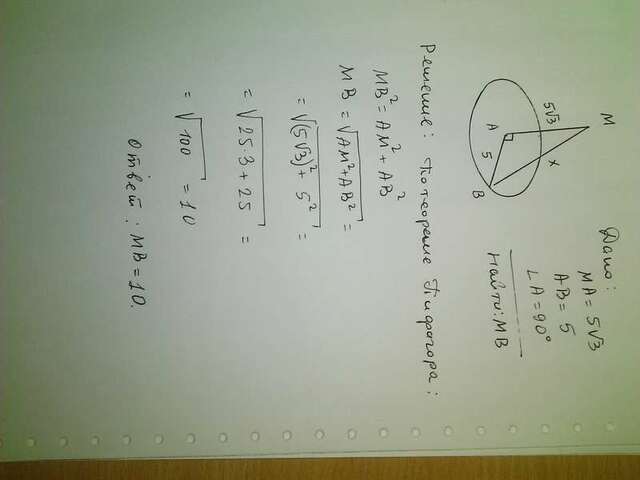 Дано:
MA = 5√3
AB = 5
∠A = 90°
Найти: MB
M
5√3
A
x
5
B
Решение: По теореме Пифагора:
MB² = AM² + AB²
MB = √AM²+AB² =
= √(5√3)² + 5² =
= √25·3 + 25 =
= √100 = 10
Ответ: MB = 10.